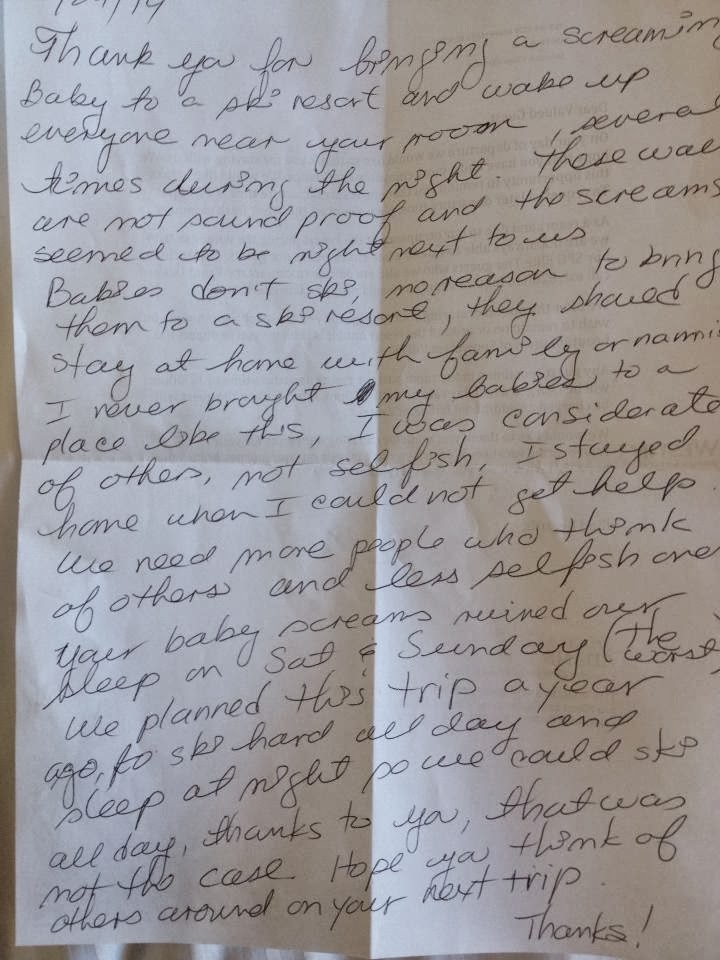 Thank ya for bringing a screaming
Baby to a ski resort and wake up
everyone near your room, several
times during the night. These wal
are not sound proof and the screams
seemed to be right next to us
Babies don't ski, no reason to bring
them to a ski resort, they should
stay at home with family or nannie
I never brought my babies to a
place like this, I was considerate
of others, not selfish, I stayed
home when I could not get help.
We need more people who think
of others and less selfish one
your baby screams ruined our
sleep on Sat & Sunday (The worst)
We planned this trip a year
ago, to ski hard all day and
sleep at night so we could ski
all day, thanks to ya, that was
not the case. Hope ya think of
others around on your next trip.
Thanks!